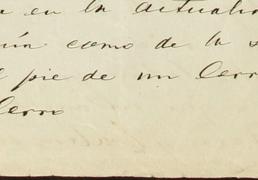 en la actuali
como de la
pie de un Cerr
Cerro